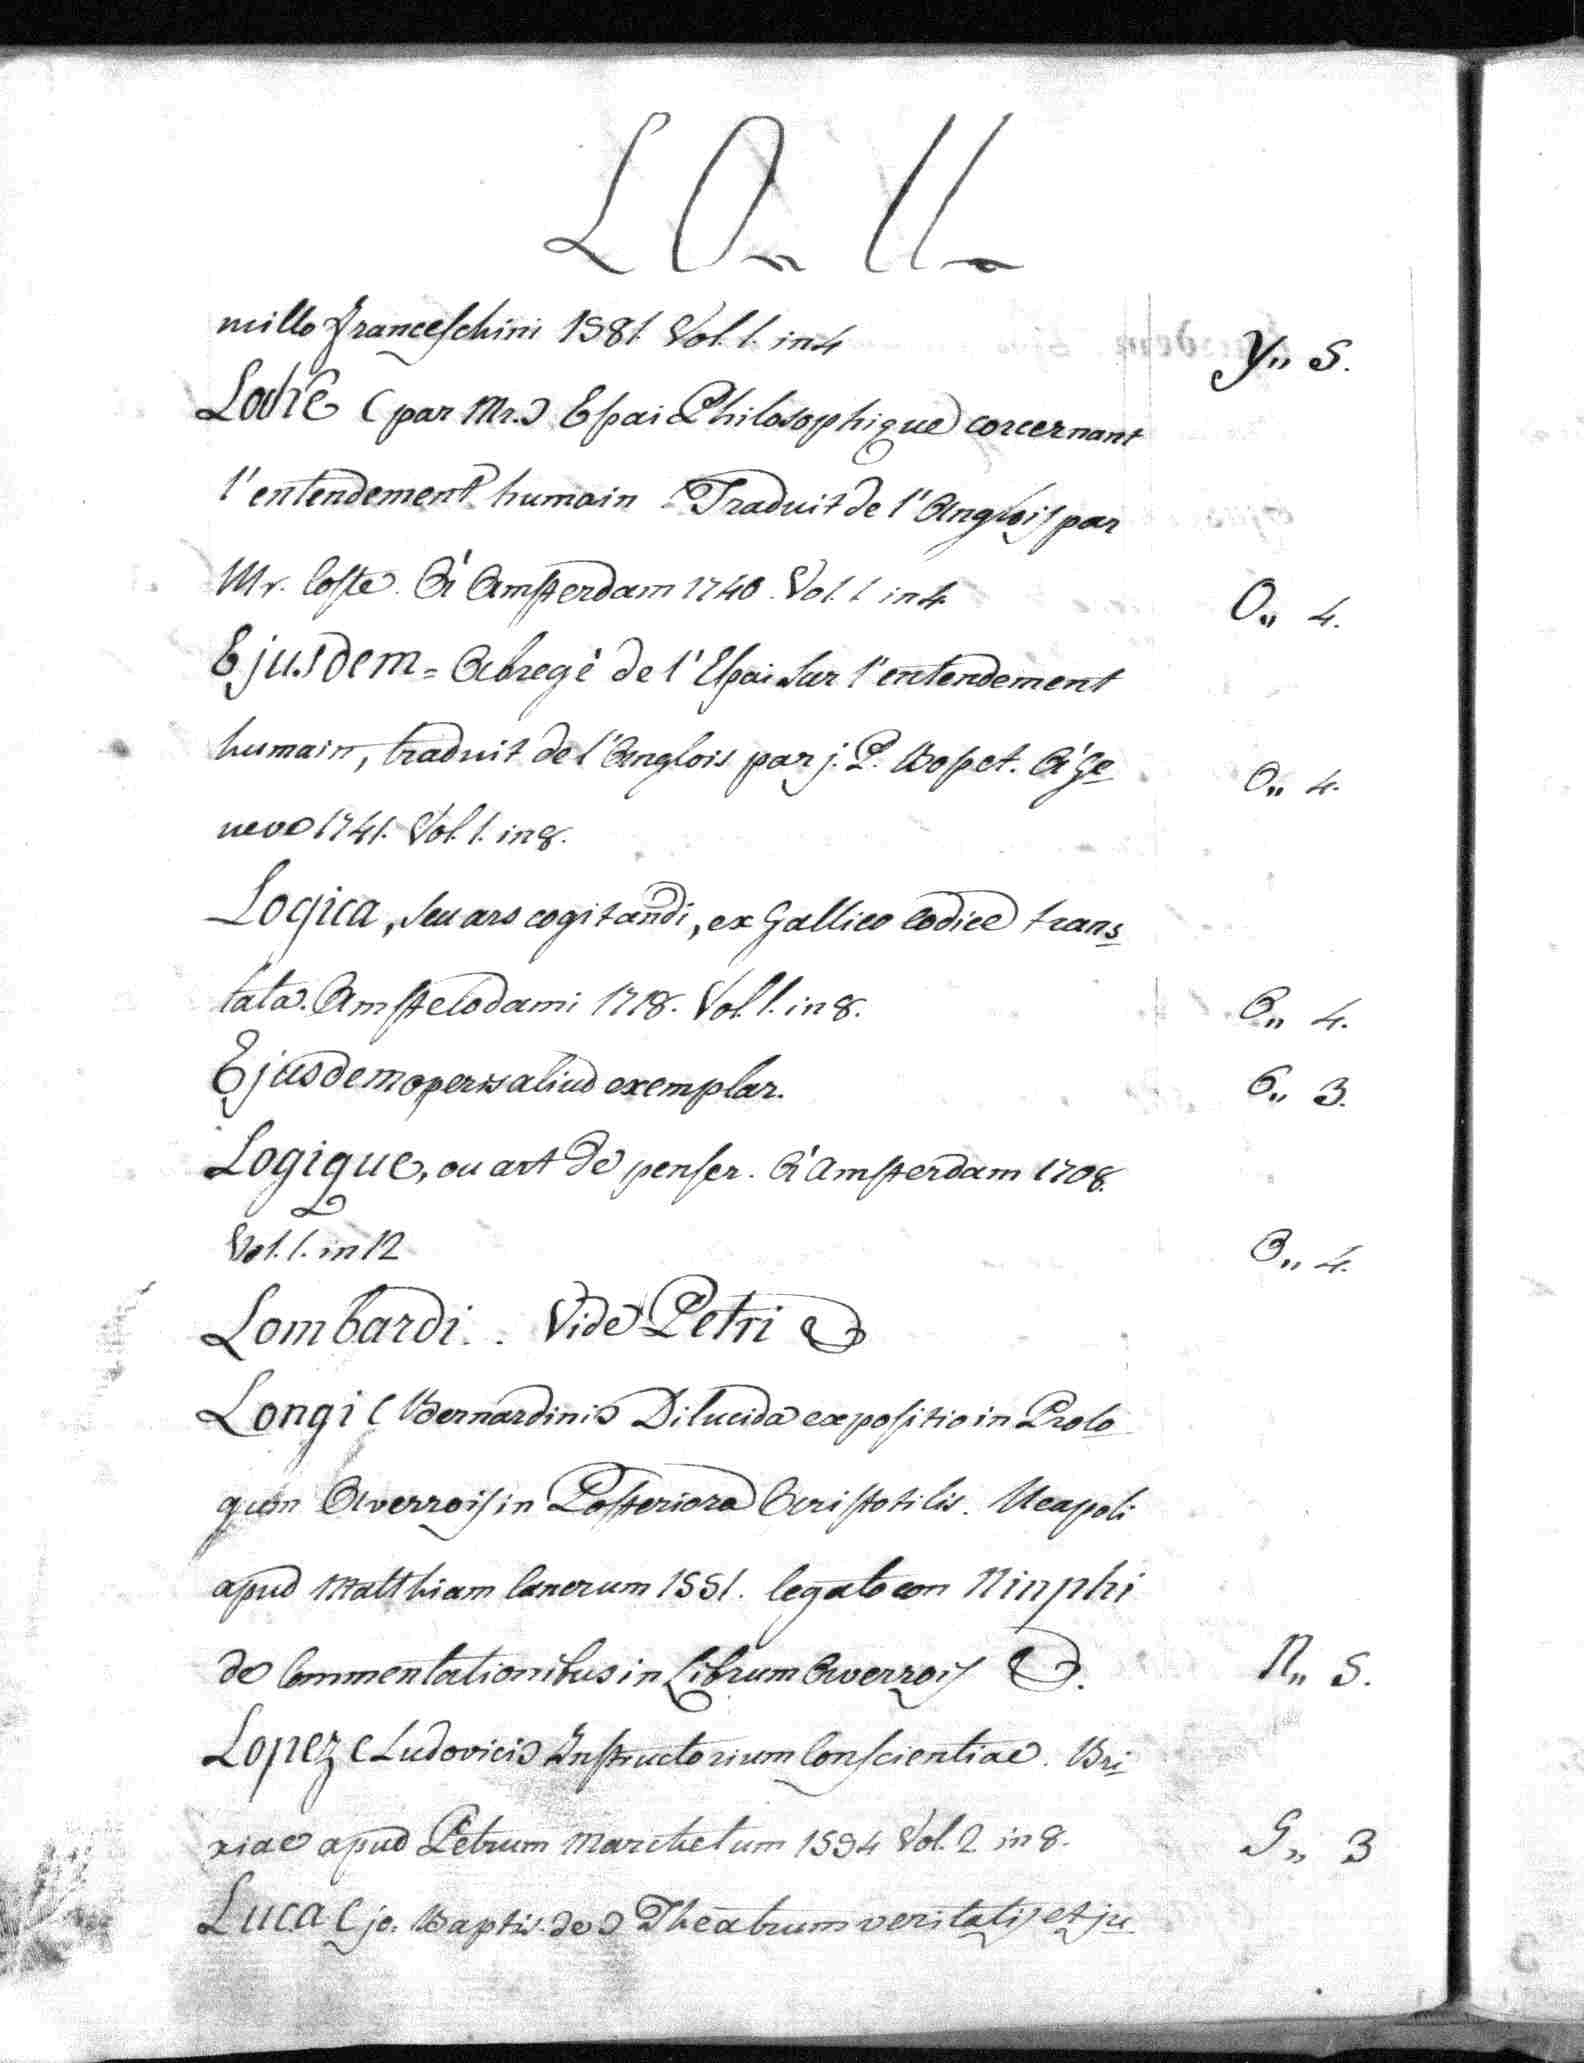 LO. LU.
millo Franceschini 1581. Vol. 1. in 4 Y,, 5.
Loche (par Mr.) Essai Philosophique concernant
l'entendement humain Traduit de l'Anglois par
Mr. Coste. A' Amsterdam 1740. Vol. 1 in 4 O,, 4.
Ejusdem = Abregè de l'Essai sur l'entendement
humain, traduit de l'Anglois par j. P. Bosset. A' Ge= O,, 4.
neve 1741. Vol. 1. in 8.
Logica, seu ars cogitandi, ex Gallico codice trans=
lata. Amstelodami 1718. Vol. 1. in 8. O,, 4.
Ejusdem operis aliud exemplar. 6,, 3.
Logique, ou art de penser. A' Amsterdam 1708.
Vol. 1. in 12 O,, 4.
Lombardi.. Vide Petri
Longi (Bernardini) Dilucida expositio in Prolo=
gum Averrois in Posteriora Aristotilis. Neapoli
apud Matthiam Cancrum 1551. legato con Ninphi
de Commentationibus in Librum Averrois N,, 5.
Lopez (Ludovici) Instructorium Conscientiae. Bri=
xiae apud Petrum Marchetum 1594 Vol. 2 in 8. G,, 3
Luca (jo. Baptis. de) Theatrum veritatis et ju=